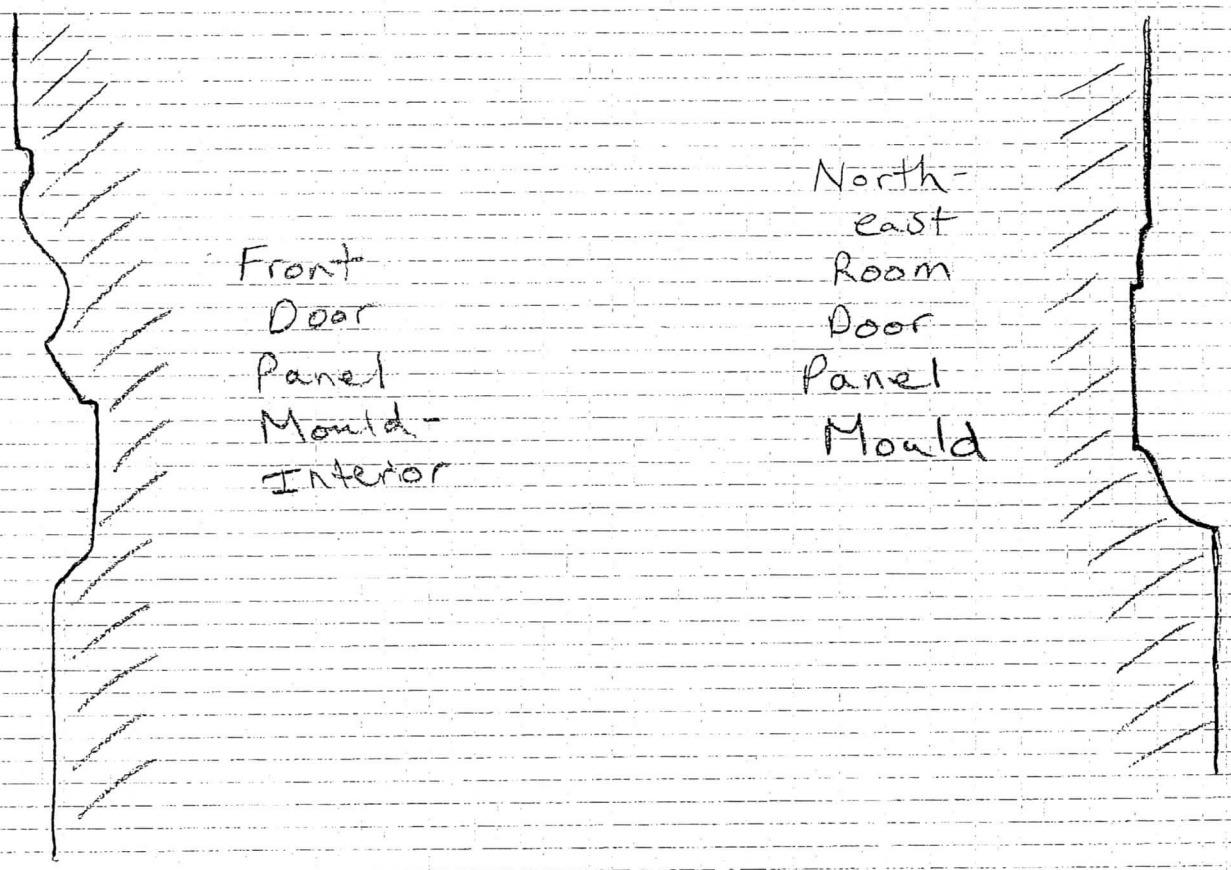 Front
Door
Panel
Mould-
Interior
North-
east
Room
Door
Panel
Mould